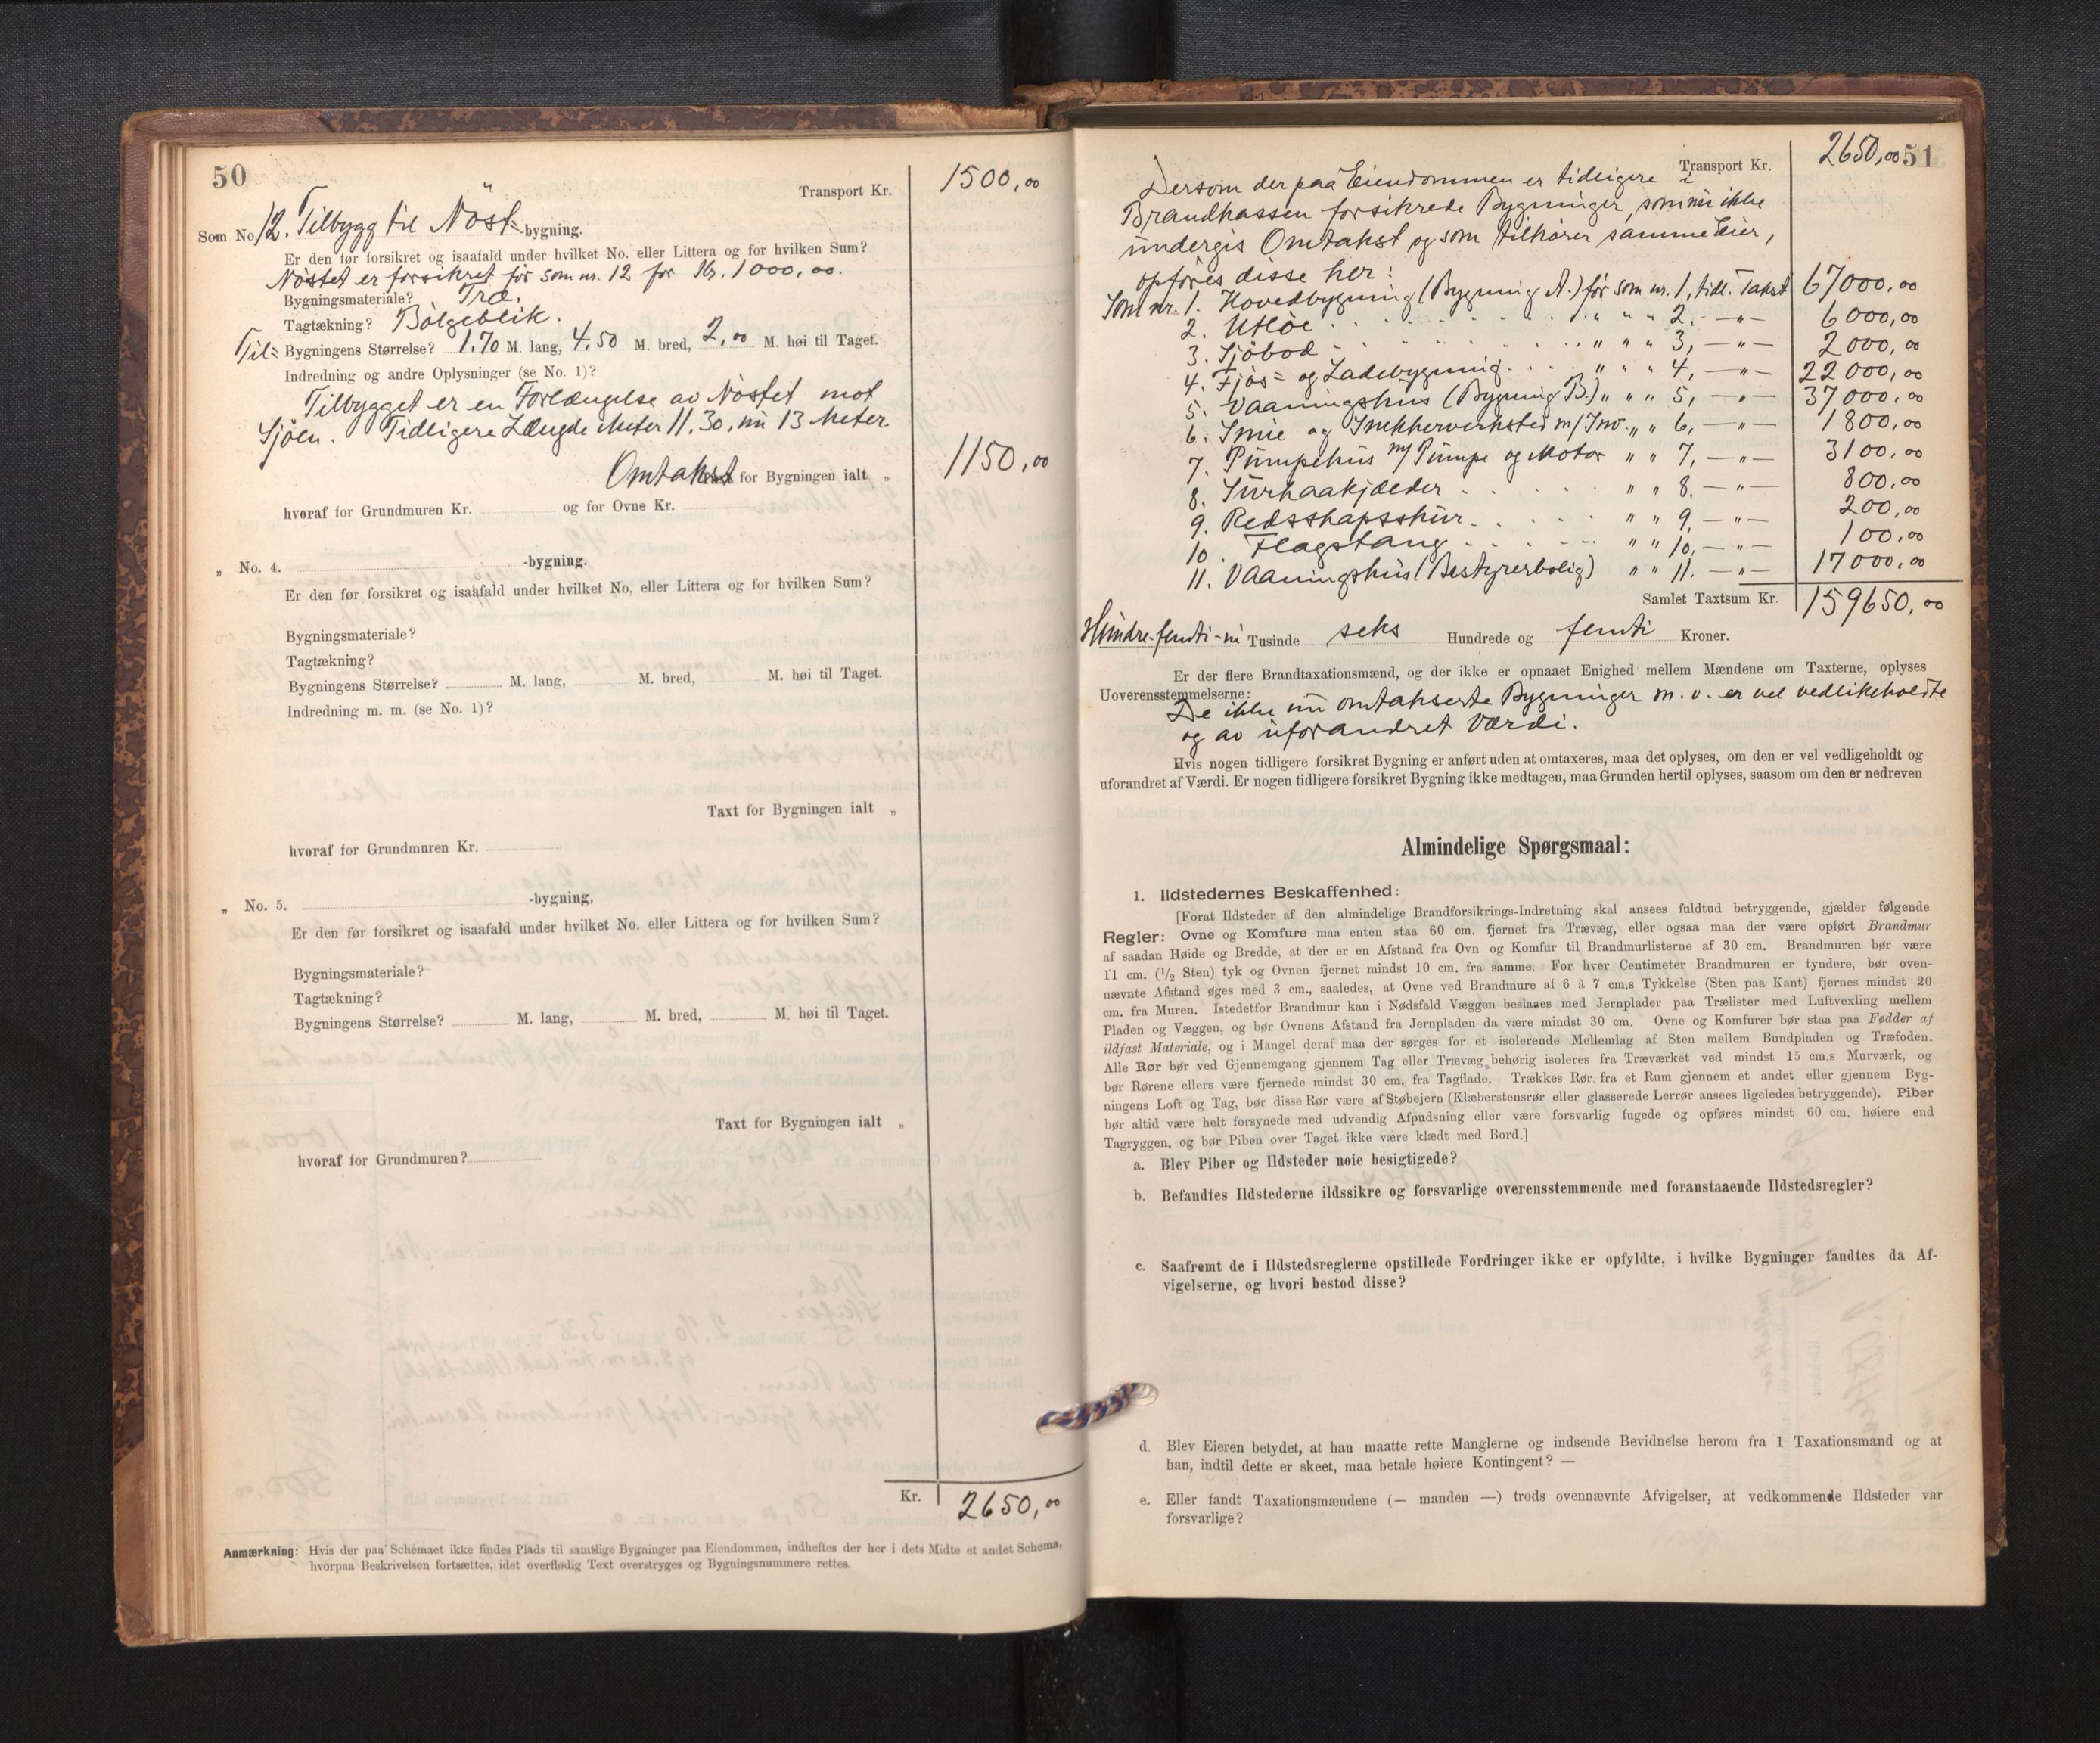 50
Transport Kr. 1500,00
Som No 12. Tilbygg til Nöst- -bygning.
Er den før forsikret og isaafald under hvilket No. eller Littera og for hvilken Sum?
Nöstet er forsikret för som nr. 12 for Kr. 1000,00.
Bygningsmateriale? Træ.
Tagtækning? Bölgeblik.
Til= Bygningens Størrelse? 1.70 M. lang, 4.50 M. bred, 2,00 M. høi til Taget.
Indredning og andre Oplysninger (se No. 1)?
Tilbygget er en Forlængelse av Nöstet mot
Sjöen. Tidligere Længde Meter 11.30, nu 13 Meter.
Omtakst for Bygningen ialt „ 1150,00
hvoraf for Grundmuren Kr. og for Ovne Kr.
„ No. 4. -bygning.
Er den før forsikret og isaafald under hvilket No. eller Littera og for hvilken Sum?
Bygningsmateriale?
Tagtækning?
Bygningens Størrelse? M. lang, M. bred, M. høi til Taget.
Indredning m. m. (se No. 1)?
Taxt for Bygningen ialt „
hvoraf for Grundmuren Kr.
„ No. 5. -bygning,
Er den før forsikret og isaafald under hvilket No. eller Littera og for hvilken Sum?
Bygningsmateriale?
Tagtækning?
Bygningens Størrelse? M. lang, M. bred, M. høi til Taget.
Taxt for Bygningen ialt „
hvoraf for Grundmuren?
Kr. 2650,00
Anmærkning: Hvis der paa Schemaet ikke findes Plads til samtlige Bygninger paa Eiendommen, indheftes der her i dets Midte et andet Schema,
hvorpaa Beskrivelsen fortsættes, idet overflødig Text overstryges og Bygningsnummere rettes.
51
Transport Kr. 2650,00
Dersom der paa Eiendommen er tidligere i
Brandkassen forsikrede Bygninger, som nu ikke
undergis Omtakst og som tilhører samme Eier,
opföres disse her:
Som nr. 1. Hovedbygning (Bygning A.) för som nr. 1, tidl. Takst 67000,00
2. Utlöe . . . „ „ 2. —„— 6000,00
3. Sjöbod . . . „ „ „ 3, —„— 2000,00
4. Fjös= og Ladebygning . . . „ „ „ 4, —„— 22000,00
5. Vaaningshus (Bygning B.) „ „ „ 5, —„— 37000,00
6. Smie og Snekkerverksted m/Inv. „ „ 6, —„— 1800,00
7. Pumpehus m/ Pumpe og Motor „ „ 7, —„— 3100,00
8. Surhaakjælder . . . „ „ 8. —„— 800,00
9. Redskapsskur . . . „ „ 9, —„— 200,00
10. Flagstang . . . „ „ 10, —„— 100,00
11. Vaaningshus (Bestyrerbolig) „ „ 11. —„— 17000,00
Samlet Taxtsum Kr. 159650,00
Hundre-femti-ni Tusinde seks Hundrede og femti Kroner.
Er der flere Brandtaxationsmænd, og der ikke er opnaaet Enighed mellem Mændene om Taxterne, oplyses
Uoverensstemmelserne:
De ikke nu omtakserte Bygninger m. v. er vel vedlikeholdte
og av uforandret Værdi.
Hvis nogen tidligere forsikret Bygning er anført uden at omtaxeres, maa det oplyses, om den er vel vedligeholdt og
uforandret af Værdi. Er nogen tidligere forsikret Bygning ikke medtagen, maa Grunden hertil oplyses, saasom om den er nedreven
Almindelige Spørgsmaal:
1. Ildstedernes Beskaffenhed:
[Forat Ildsteder af den almindelige Brandforsikrings-Indretning skal ansees fuldtud betryggende, gjælder følgende
Regler: Ovne og Komfure maa enten staa 60 cm. fjernet fra Trævæg, eller ogsaa maa der være opført Brandmur
af saadan Høide og Bredde, at der er en Afstand fra Ovn og Komfur til Brandmurlisterne af 30 cm. Brandmuren bør være
11 cm. (1/2 Sten) tyk og Ovnen fjernet mindst 10 cm. fra samme. For hver Centimeter Brandmuren er tyndere, bør oven-
nævnte Afstand øges med 3 cm., saaledes, at Ovne ved Brandmure af 6 à 7 cm.s Tykkelse (Sten paa Kant) fjernes mindst 20
cm. fra Muren. Istedetfor Brandmur kan i Nødsfald Væggen beslaaes med Jernplader paa Trælister med Luftvexling mellem
Pladen og Væggen, og bør Ovnens Afstand fra Jernpladen da være mindst 30 cm. Ovne og Komfurer bør staa paa Fødder af
ildfast Materiale, og i Mangel deraf maa der sørges for et isolerende Mellemlag af Sten mellem Bundpladen og Træfoden.
Alle Rør bør ved Gjennemgang gjennem Tag eller Trævæg behørig isoleres fra Træværket ved mindst 15 cm.s Murværk, og
bør Rørene ellers være fjernede mindst 30 cm. fra Tagflade. Trækkes Rør fra et Rum gjennem et andet eller gjennem Byg-
ningens Loft og Tag, bør disse Rør være af Støbejern (Klæberstensrør eller glasserede Lerrør ansees ligeledes betryggende). Piber
bør altid være helt forsynede med udvendig Afpudsning eller være forsvarlig fugede og opføres mindst 60 cm. høiere end
Tagryggen, og bør Piben over Taget ikke være klædt med Bord.]
a. Blev Piber og Ildsteder nøie besigtigede?
b. Befandtes Ildstederne ildssikre og forsvarlige overensstemmende med foranstaaende Ildstedsregler?
c. Saafremt de i Ildstedsreglerne opstillede Fordringer ikke er opfyldte, i hvilke Bygninger fandtes da Af-
vigelserne, og hvori bestod disse?
d. Blev Eieren betydet, at han maatte rette Manglerne og indsende Bevidnelse herom fra 1 Taxationsmand og at
han, indtil dette er skeet, maa betale høiere Kontingent? —
e. Eller fandt Taxationsmændene (— manden —) trods ovennævnte Afvigelser, at vedkommende Ildsteder var
forsvarlige?